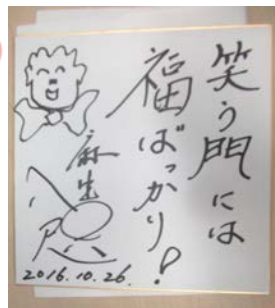 笑う門には
福ばっかり!
麻生
2016.10.26.